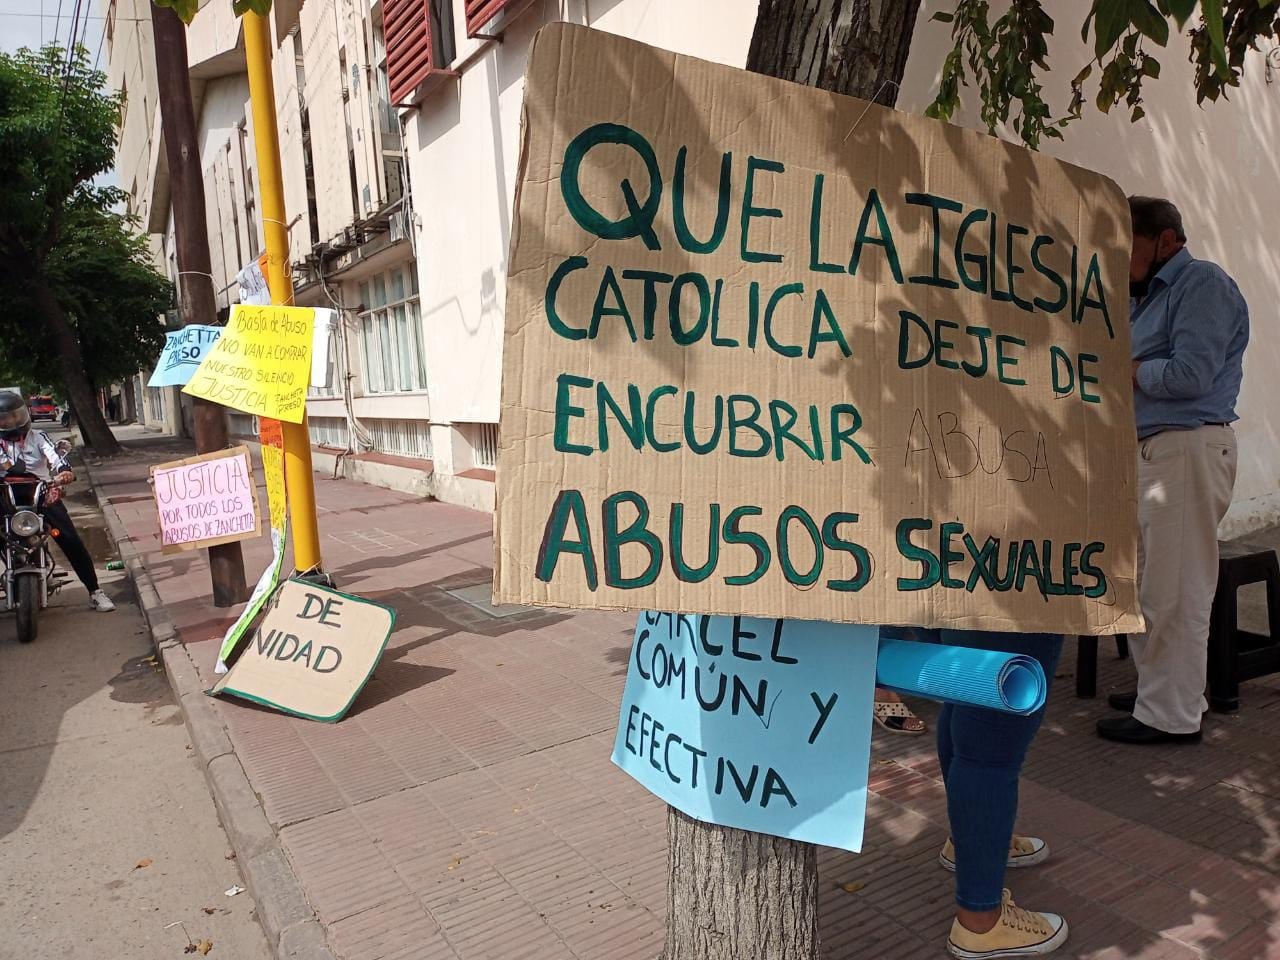 QUE LA IGLESIA
CATOLICA DEJE DE
ENCUBRIR ABUSA
ABUSOS SEXUALES
CARCEL
COMÚN Y
EFECTIVA
ZANCHETTA
PRESO
Basta de Abuso
NO VAN A COMPRAR
NUESTRO SILENCIO
JUSTICIA ZANCHETTA
PRESO
JUSTICIA
POR TODOS LOS
ABUSOS DE ZANCHETTA
DE
NIDAD